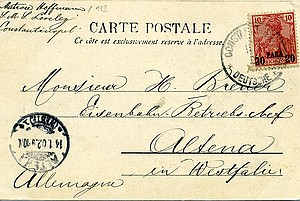 Matrose Hoffmann
S.M.S. Loreley
Constantinopel
CARTE POSTALE
Ce côté est exclusivement réservé à l'adresse
10 10
PARA
20 20
DEUTSCHE
Monsieur H.
Eisenbahn-Betriebs-Chef
Altena
in Westfalen
Allemagne
14.1.02.9-10V.